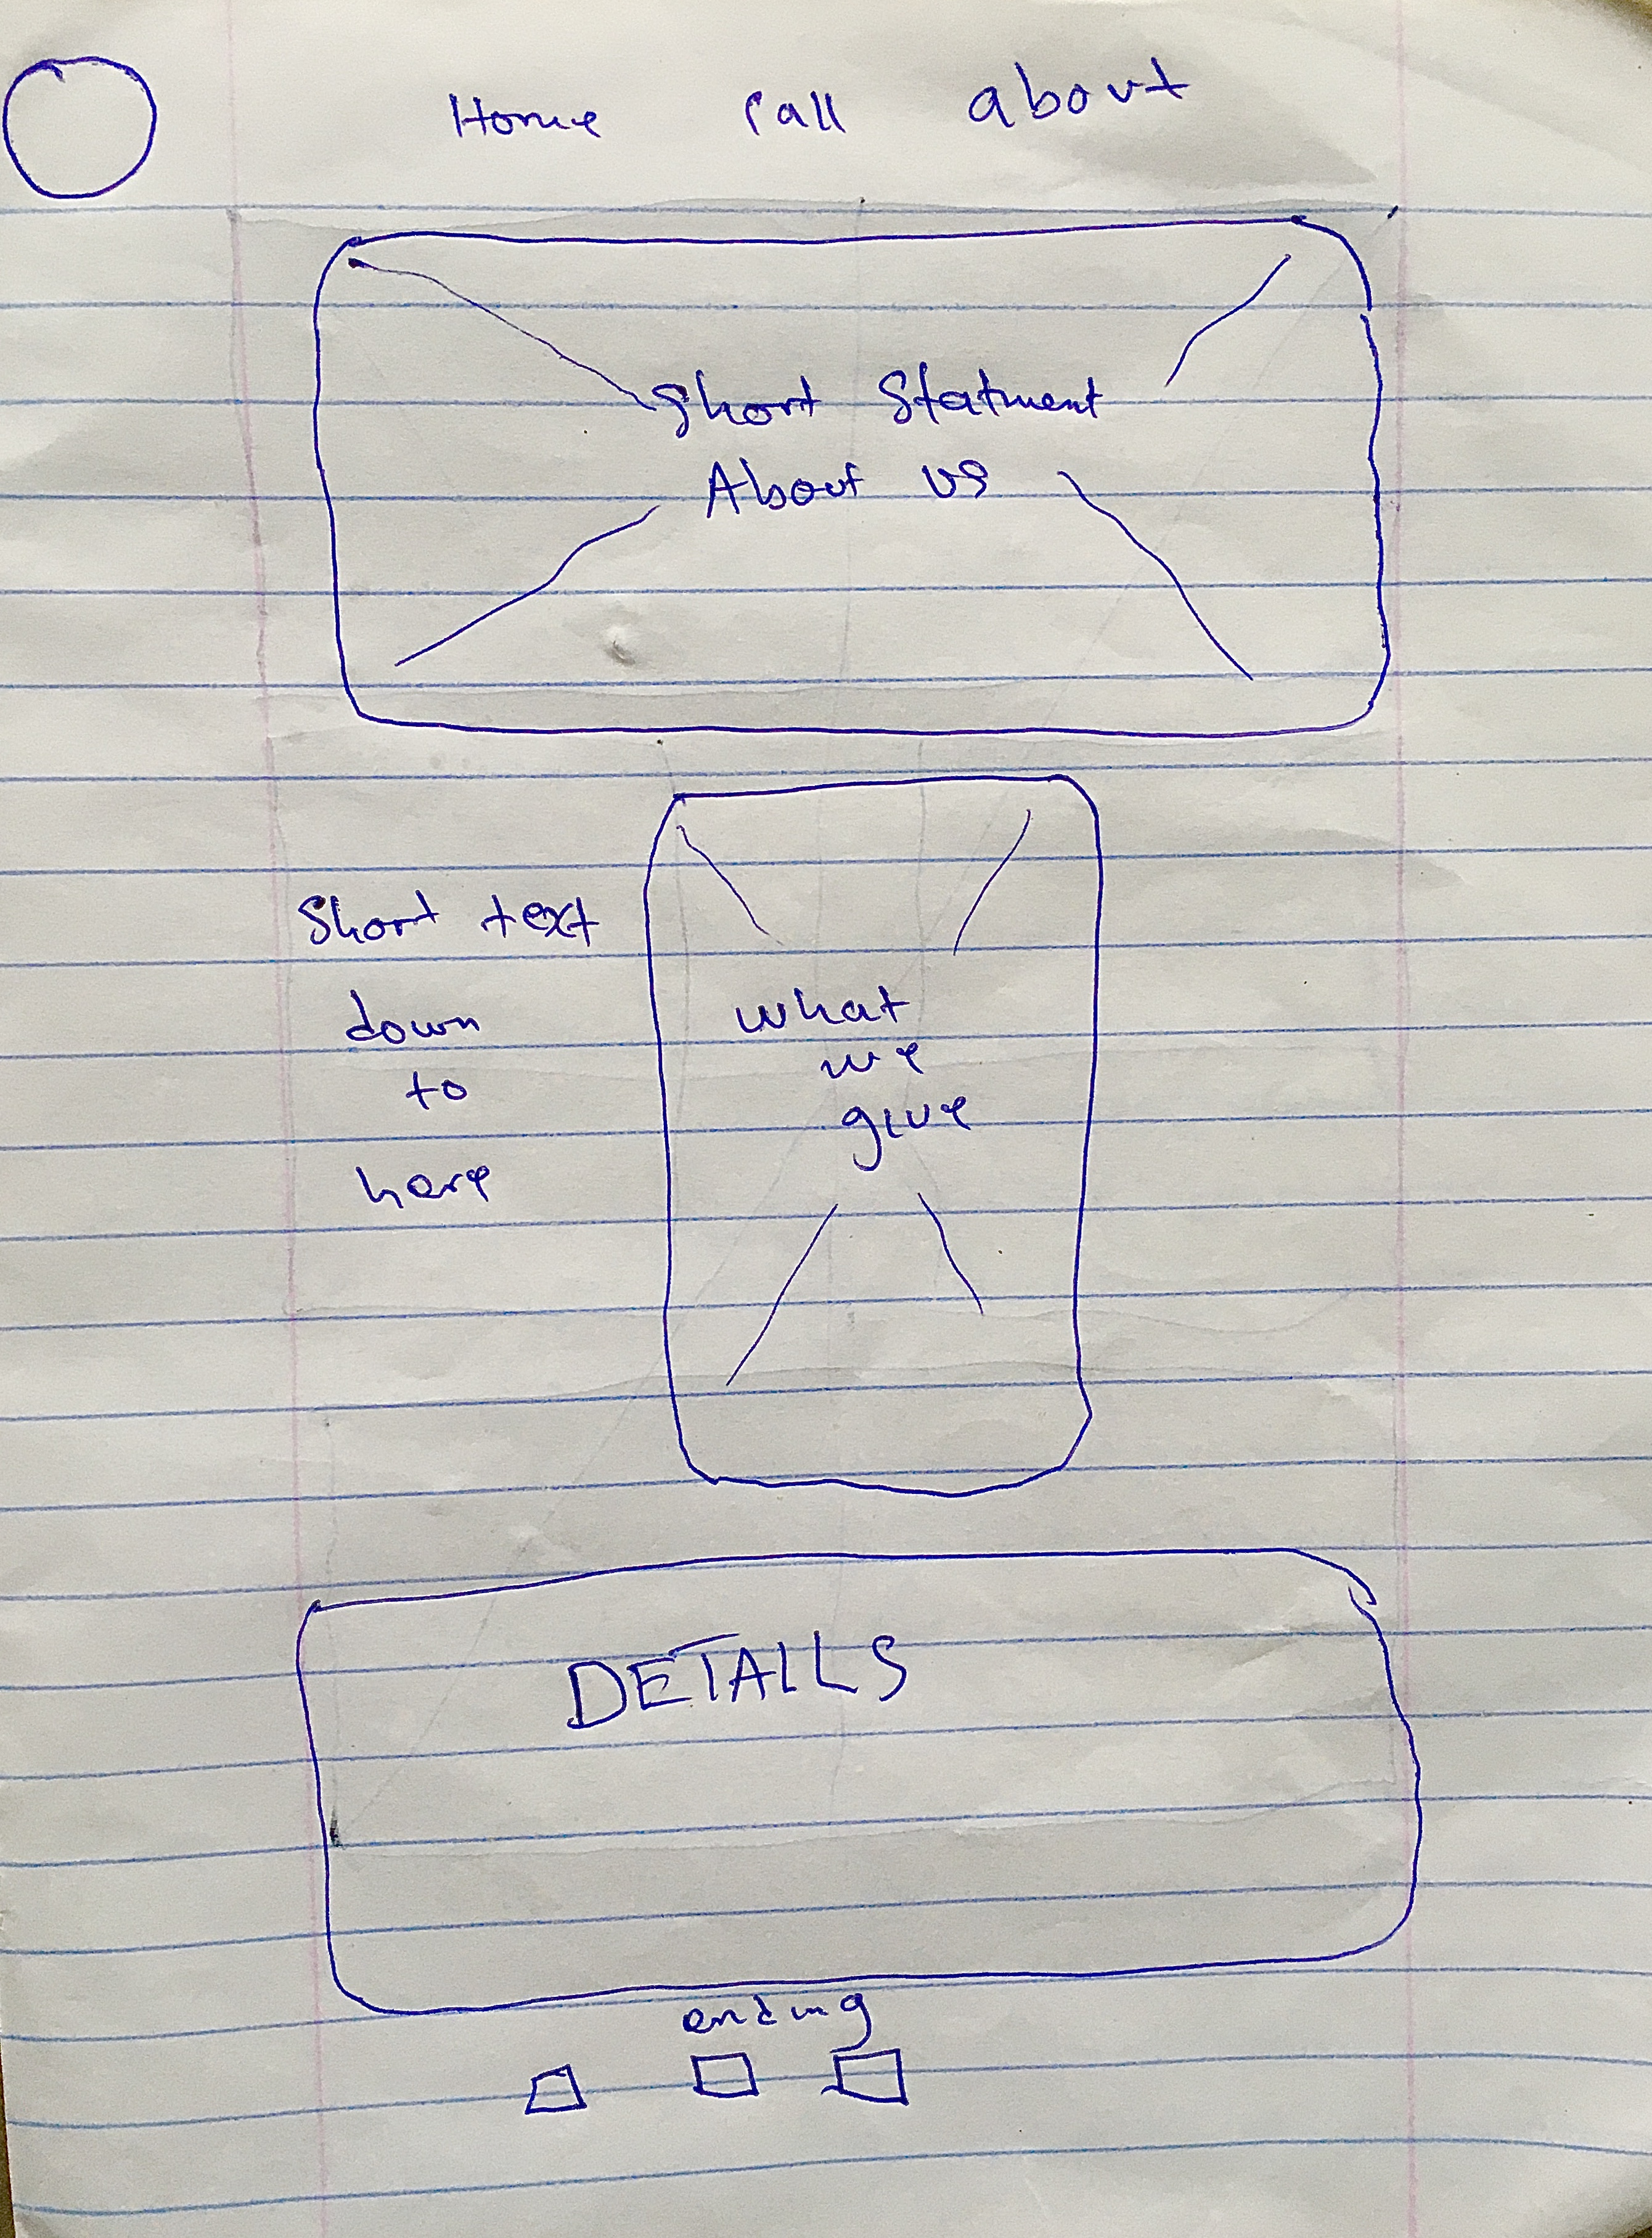 Home call about
Short Statment
About us
Short text
down
to
here
what
we
give
DETAILS
ending